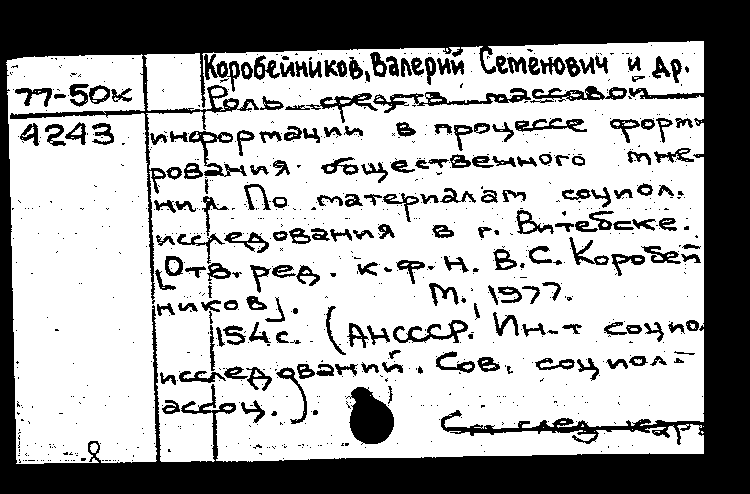 Коробейников, Валерий Семенович и др.
77-50к Роль средств массовой
4243 информации в процессе форми
рования общественного мне-
ния. По материалам социол.
исследования в г. Витебске.
[Отв. ред. к.ф.н. В.С. Коробей
ников]. М. 1977.
154с. (АНСССР. Ин-т социо
исследований. Сов. социол-
ассоц.).
См след. карт